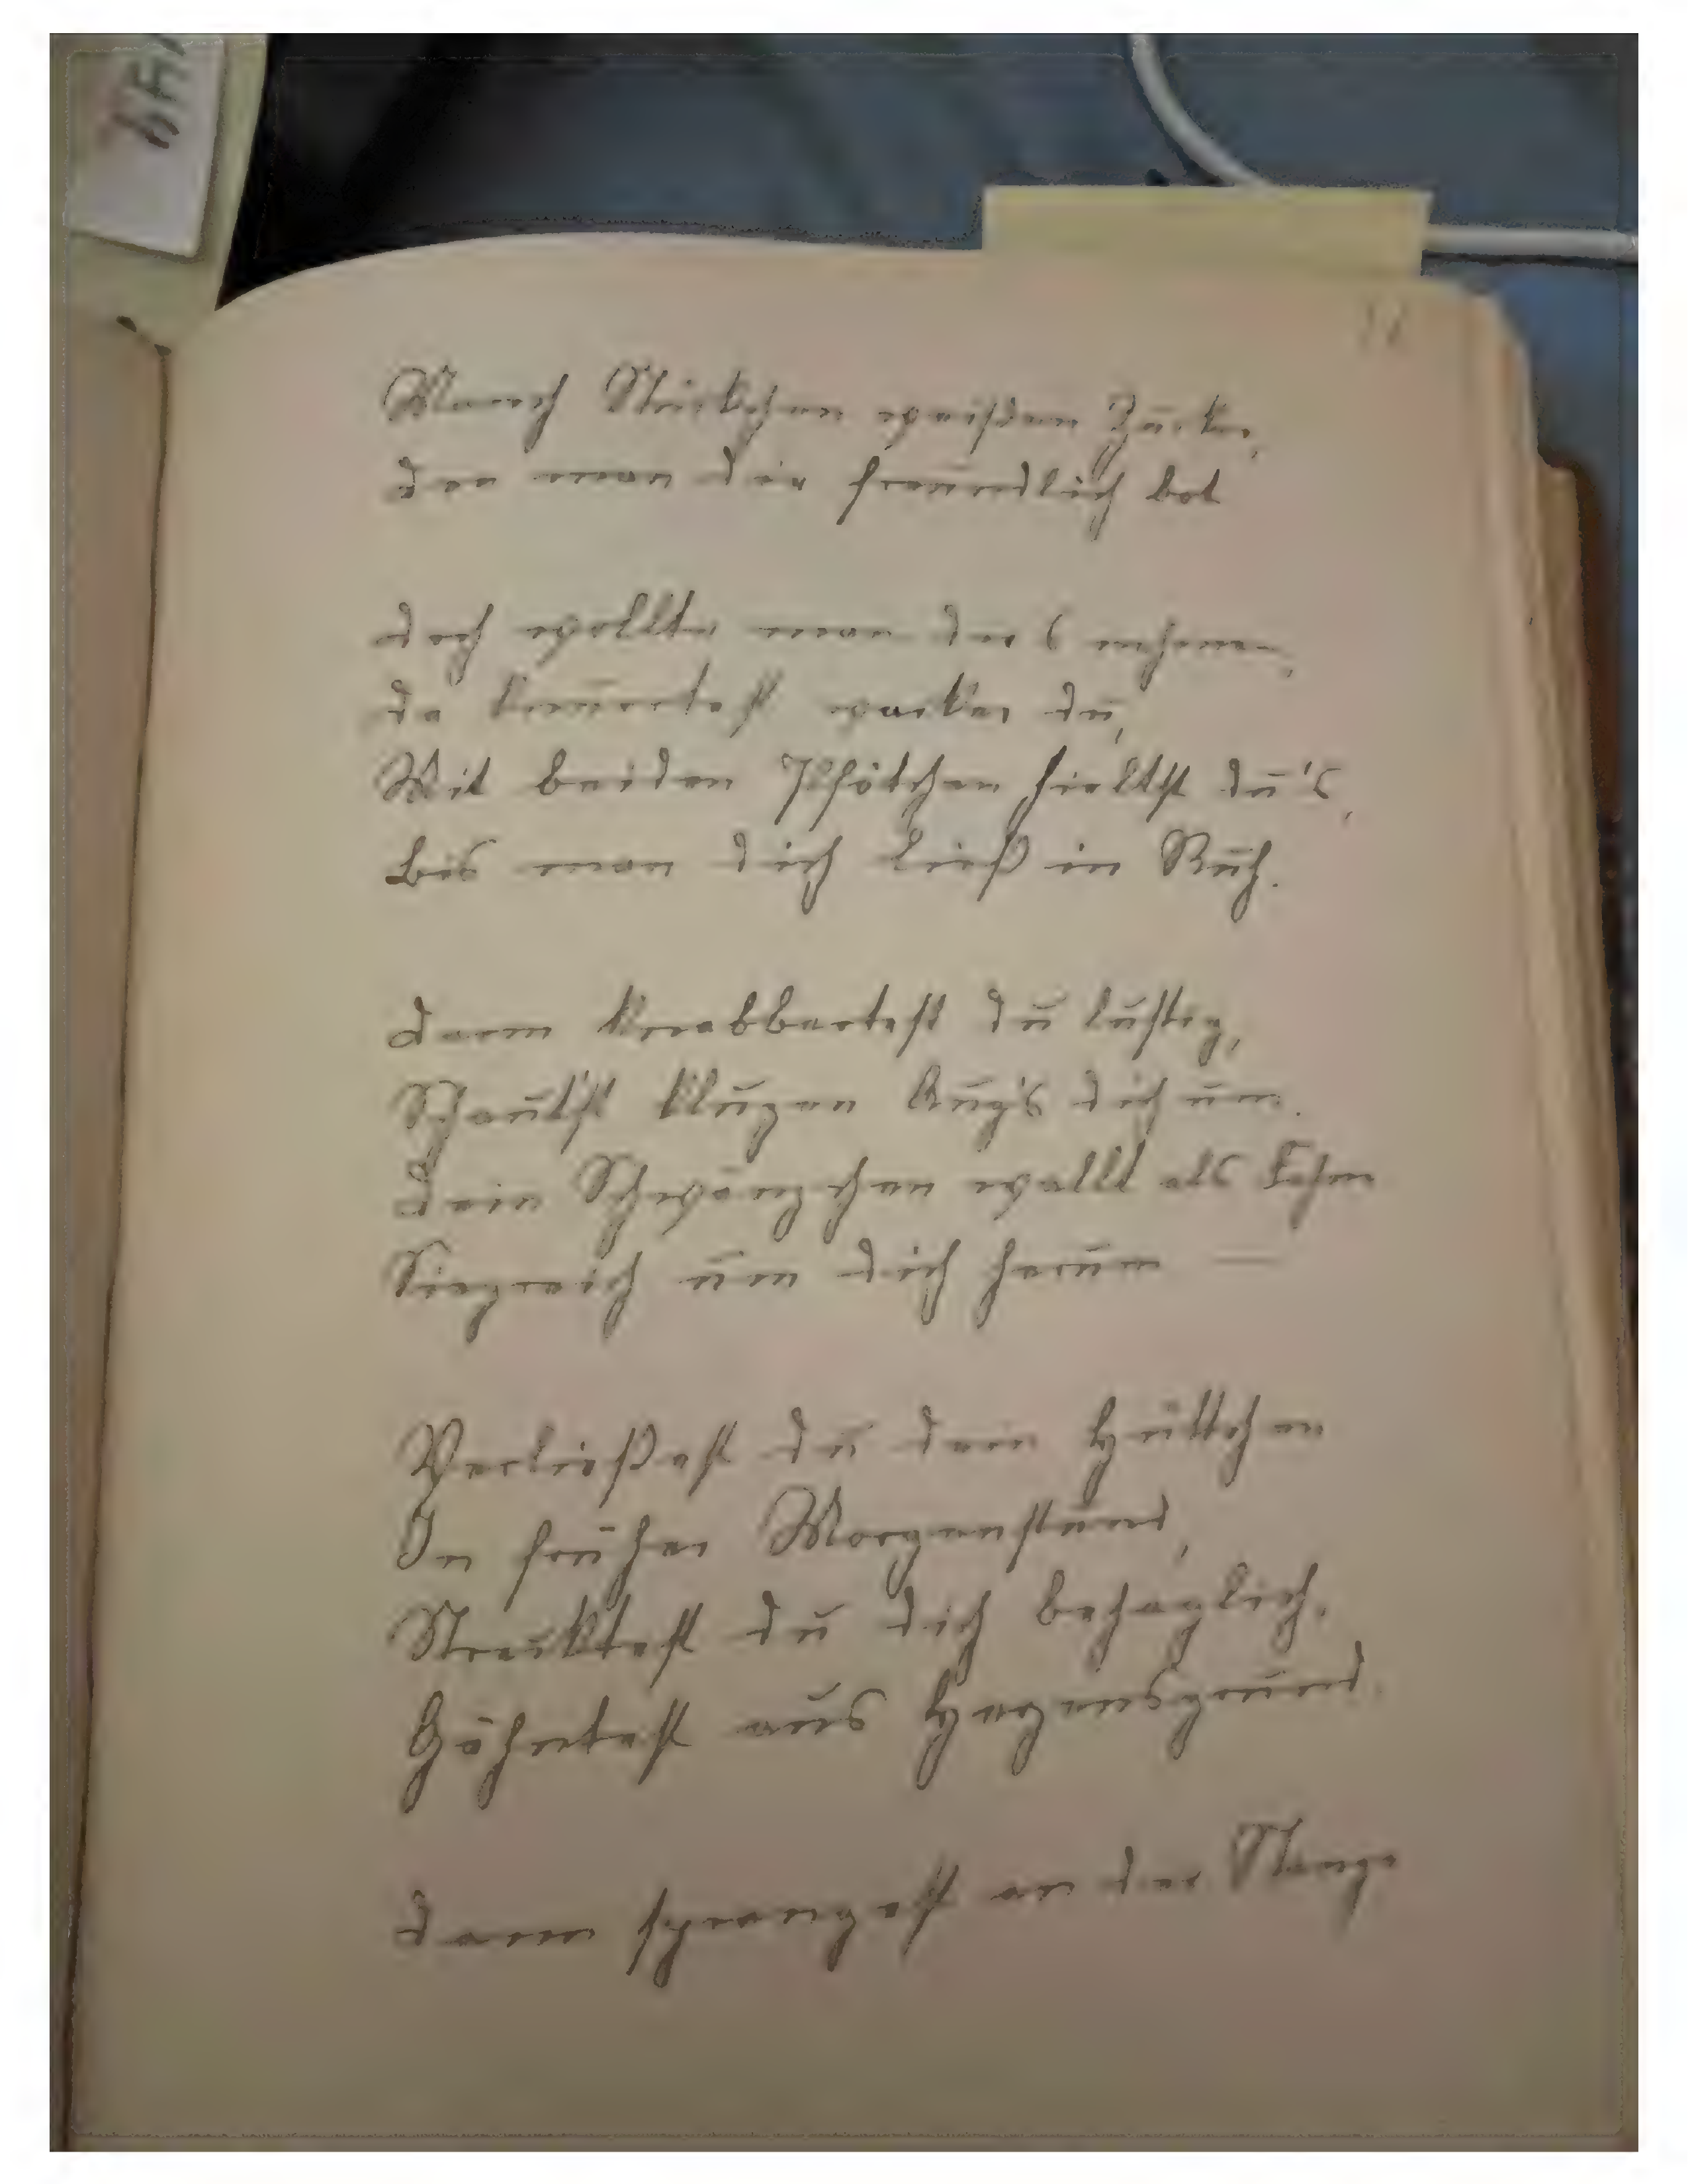 Manch Stückchen weißen Zucker,
den man dir freundlich bot
doch wollte man dir's nehmen,
da knurrtest wacker du,
Mit beiden Pfötchen hieltst du's,
bis man dich ließ in Ruh.
dann knabbertest du lustig,
Schaut'st klugen Aug's dich um.
Dein Schwänzchen wallt als Fahn
Siegreich um dich herum —
Verließest du dein Hüttchen
In früher Morgenstund,
Strecktest du dich behaglich,
Gähntest aus Herzensgrund.
dann sprangest an der Stange